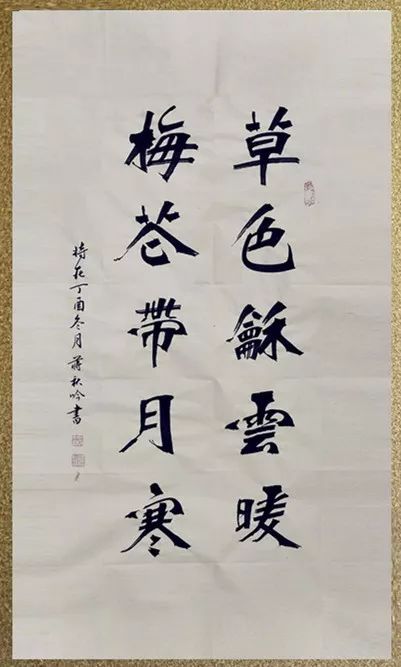 草色龢雲暖
梅花帶月寒
時在丁酉冬月蔣秋吟書